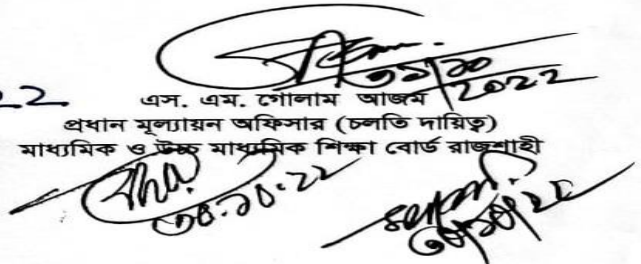 ৩১/১০
২২ /2022
এস. এম. গোলাম আজম
প্রধান মূল্যায়ন অফিসার (চলতি দায়িত্ব)
মাধ্যমিক ও উচ্চ মাধ্যমিক শিক্ষা বোর্ড রাজশাহী
৩০.১০.২২
৩০/১০/২২